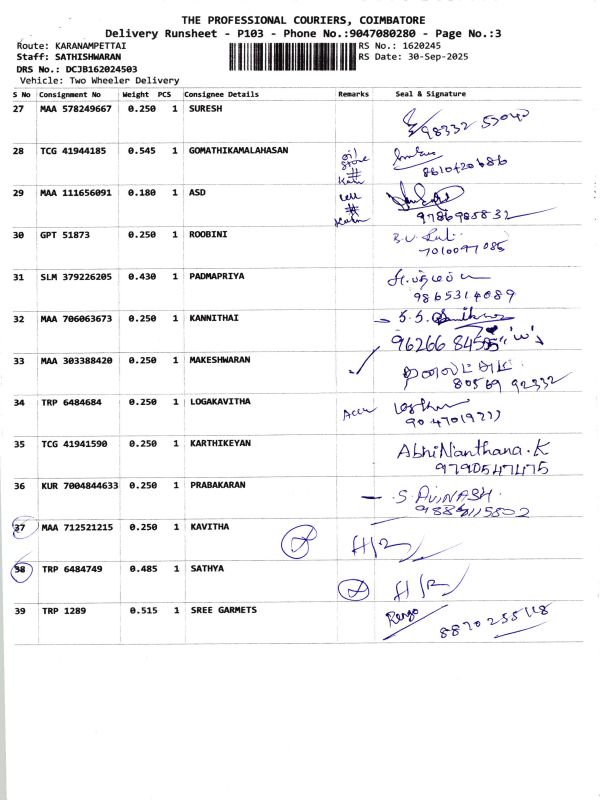 THE PROFESSIONAL COURIERS, COIMBATORE
Delivery Runsheet - P103 - Phone No.:9047080280 - Page No.:3
Route: KARANAMPETTAI RS No.: 1620245
Staff: SATHISHWARAN RS Date: 30-Sep-2025
DRS No.: DCJB162024503
Vehicle: Two Wheeler Delivery
S No Consignment No Weight PCS Consignee Details Remarks Seal & Signature
27 MAA 578249667 0.250 1 SURESH
98332 53040
28 TCG 41944185 0.545 1 GOMATHIKAMALAHASAN
oil
store
#
8610420686
29 MAA 111656091 0.180 1 ASD
#
9786985832
30 GPT 51873 0.250 1 ROOBINI
7010097085
31 SLM 379226205 0.430 1 PADMAPRIYA
9865314089
32 MAA 706063673 0.250 1 KANNITHAI
33 MAA 303388420 0.250 1 MAKESHWARAN
80569 92332
34 TRP 6484684 0.250 1 LOGAKAVITHA
35 TCG 41941590 0.250 1 KARTHIKEYAN
AbhiNanthana.K
9790547475
36 KUR 7004844633 0.250 1 PRABAKARAN
S. AVINASH
37 MAA 712521215 0.250 1 KAVITHA
38 TRP 6484749 0.485 1 SATHYA
39 TRP 1289 0.515 1 SREE GARMETS
8870255118